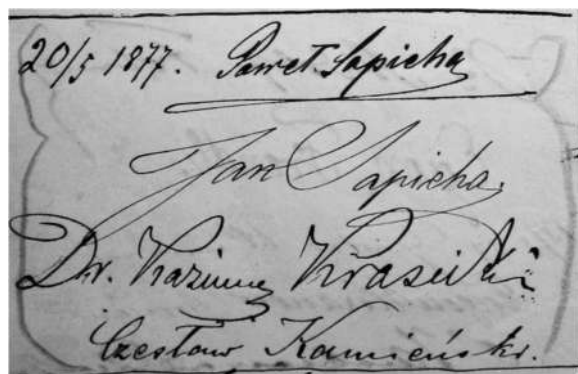 20/5 1877. Paweł Sapieha
Jan Sapieha.
Dr. Kazimierz Krasicki
Czesław Kamieński.